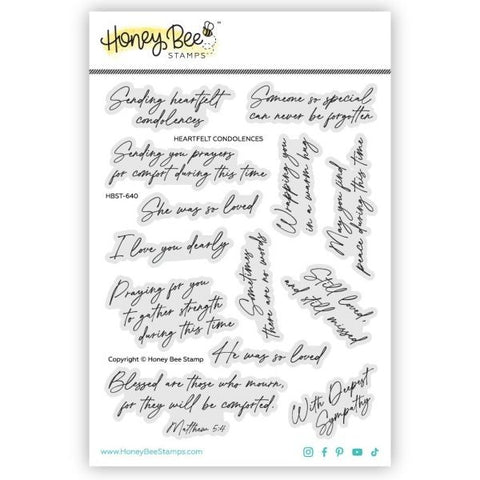 Honey Bee
STAMPS
Sending heartfelt
condolences
Someone so special
can never be forgotten
HEARTFELT CONDOLENCES
Sending you prayers
for comfort during this time
Wrapping you
in a warm hug
May you find
peace during this time
HBST-640
She was so loved
I love you dearly
Sometimes
there are no words
Still loved,
and still missed
Praying for you
to gather strength
during this time
Copyright © Honey Bee Stamp
He was so loved
Blessed are those who mourn,
for they will be comforted.
Matthew 5:4
With Deepest
Sympathy
www.HoneyBeeStamps.com